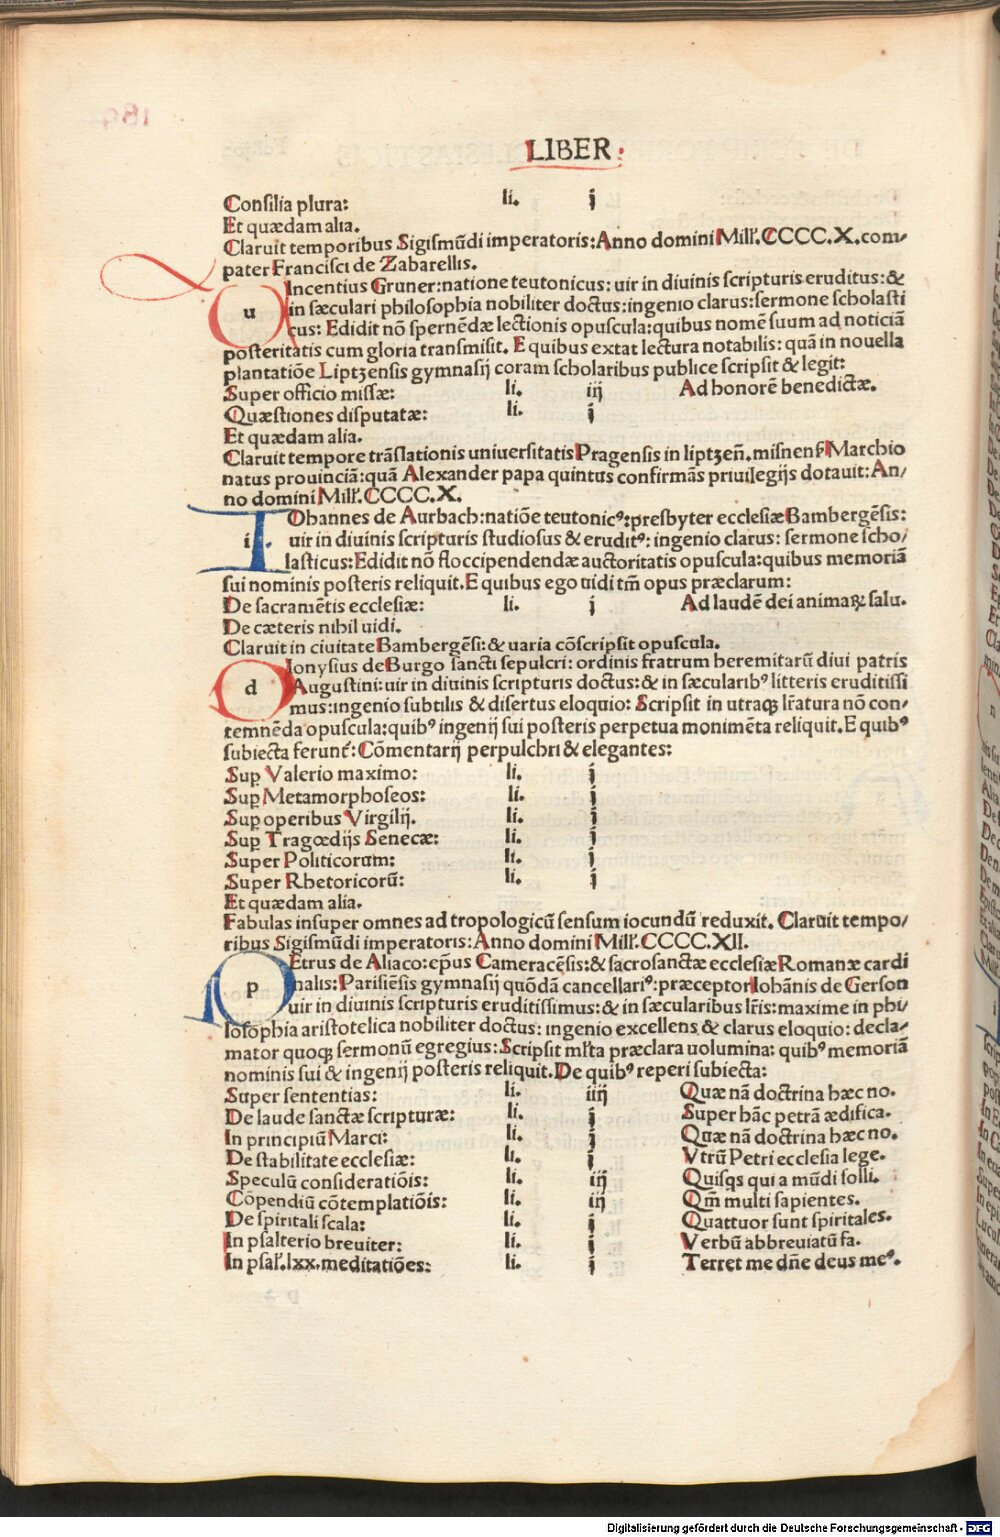 LIBER:
Consilia plura: li. j
Et quædam alia.
Claruit temporibus Sigismũdi imperatoris: Anno domini Mill'. CCCC.X. com/
pater Francisci de Zabarellis.
u Incentius Gruner: natione teutonicus: uir in diuinis scripturis eruditus: &
in sæculari philosophia nobiliter doctus: ingenio clarus: sermone scholasti
cus: Edidit nõ spernẽdæ lectionis opuscula: quibus nomẽ suum ad noticiã
posteritatis cum gloria transmisit. E quibus extat lectura notabilis: quã in nouella
plantatiõe Liptzensis gymnasij coram scholaribus publice scripsit & legit:
Super officio missæ: li. iij Ad honorẽ benedictæ.
Quæstiones disputatæ: li. j
Et quædam alia.
Claruit tempore trãslationis uniuersitatis Pragensis in liptzeñ. misnens̃ Marchio
natus prouinciã: quã Alexander papa quintus confirmãs priuilegijs dotauit: An/
no domini Mill'. CCCC.X.
i IOhannes de Aurbach: natiõe teutonicꝰ: presbyter ecclesiæ Bambergẽsis:
uir in diuinis scripturis studiosus & eruditꝰ: ingenio clarus: sermone scho/
lasticus: Edidit nõ floccipendendæ auctoritatis opuscula: quibus memoriã
sui nominis posteris reliquit. E quibus ego uidi tm̃ opus præclarum:
De sacramẽtis ecclesiæ: li. j Ad laudẽ dei animaꝝ salu.
De cæteris nihil uidi.
Claruit in ciuitate Bambergẽsi: & uaria cõscripsit opuscula.
d Ionysius de Burgo sancti sepulcri: ordinis fratrum heremitarũ diui patris
Augustini: uir in diuinis scripturis doctus: & in sæcularibꝰ litteris eruditissi
mus: ingenio subtilis & disertus eloquio: Scripsit in utraqꝫ lr̃atura nõ con/
temnẽda opuscula: quibꝰ ingenij sui posteris perpetua monimẽta reliquit. E quibꝰ
subiecta ferunt̃: Cõmentarij perpulchri & elegantes:
Suꝑ Valerio maximo: li. j
Suꝑ Metamorphoseos: li. j
Suꝑ operibus Virgilij. li. j
Suꝑ Tragœdijs Senecæ: li. j
Super Politicorum: li. j
Super Rhetoricorũ: li. j
Et quædam alia.
Fabulas insuper omnes ad tropologicũ sensum iocundũ reduxit. Claruit tempo/
ribus Sigismũdi imperatoris: Anno domini Mill'. CCCC.XII.
p Etrus de Aliaco: ep̃us Cameracẽsis: & sacrosanctæ ecclesiæ Romanæ cardi
nalis: Parisiẽsis gymnasij quõdã cancellariꝰ: præceptor Iohãnis de Gerson
uir in diuinis scripturis eruditissimus: & in sæcularibus lr̃is: maxime in phi/
losophia aristotelica nobiliter doctus: ingenio excellens & clarus eloquio: decla/
mator quoqꝫ sermonũ egregius: Scripsit ml'ta præclara uolumina: quibꝰ memoriã
nominis sui & ingenij posteris reliquit. De quibꝰ reperi subiecta:
Super sententias: li. iiij Quæ nã doctrina hæc no.
De laude sanctæ scripturæ: li. j Super hãc petrã ædifica.
In principiũ Marci: li. j Quæ nã doctrina hæc no.
De stabilitate ecclesiæ: li. j Vtrũ Petri ecclesia lege.
Speculũ consideratiõis: li. iij Quisqs qui a mũdi solli.
Cõpendiũ cõtemplatiõis: li. iij Qm̃ multi sapientes.
De spiritali scala: li. j Quattuor sunt spiritales.
In psalterio breuiter: li. j Verbũ abbreuiatũ fa.
In psal'. lxx. meditatiões: li. j Terret me dñe deus meꝰ.
Digitalisierung gefördert durch die Deutsche Forschungsgemeinschaft - DFG